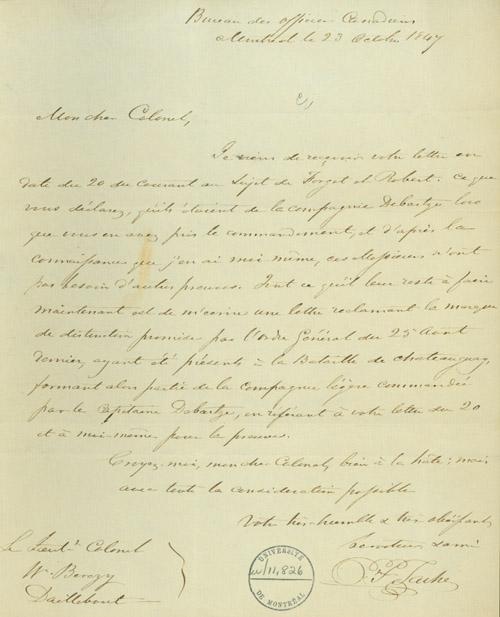 Bureau des officiers Canadiens
Montreal le 23 Octobre 1847
Mon cher Colonel,
Je viens de reçevoir votre lettre en
date du 20 du courant au sujet de Forget et Robert: ce que
vous déclarez, qu'ils étaient de la compagnie Debartzch lors
que vous en avez pris le commandement, et d'après la
connaissance que j'en ai moi même, ces Messieurs n'ont
pas besoin d'autres preuves. Tout ce qu'il leur reste à faire
maintenant est de m'écrire une lettre reclamant la marque
de distinction promise par l'Ordre Général du 25 Aout
dernier, ayant été présents à la Bataille de Chateauguay,
formant alors partie de la compagnie légère commandée
par le Capitaine Debartzch, en référant à votre lettre du 20
et à moi-même pour les preuves.
Croyez-moi, mon cher Colonel, bien à la hâte; mais
avec toute la consideration possible
Votre très-humble & très obéissant
serviteur & ami
E P Tache
Le Lieut. Colonel
Wm Berczy
Daillebout
UNIVERSITÉ
u/11,826
DE MONTRÉAL